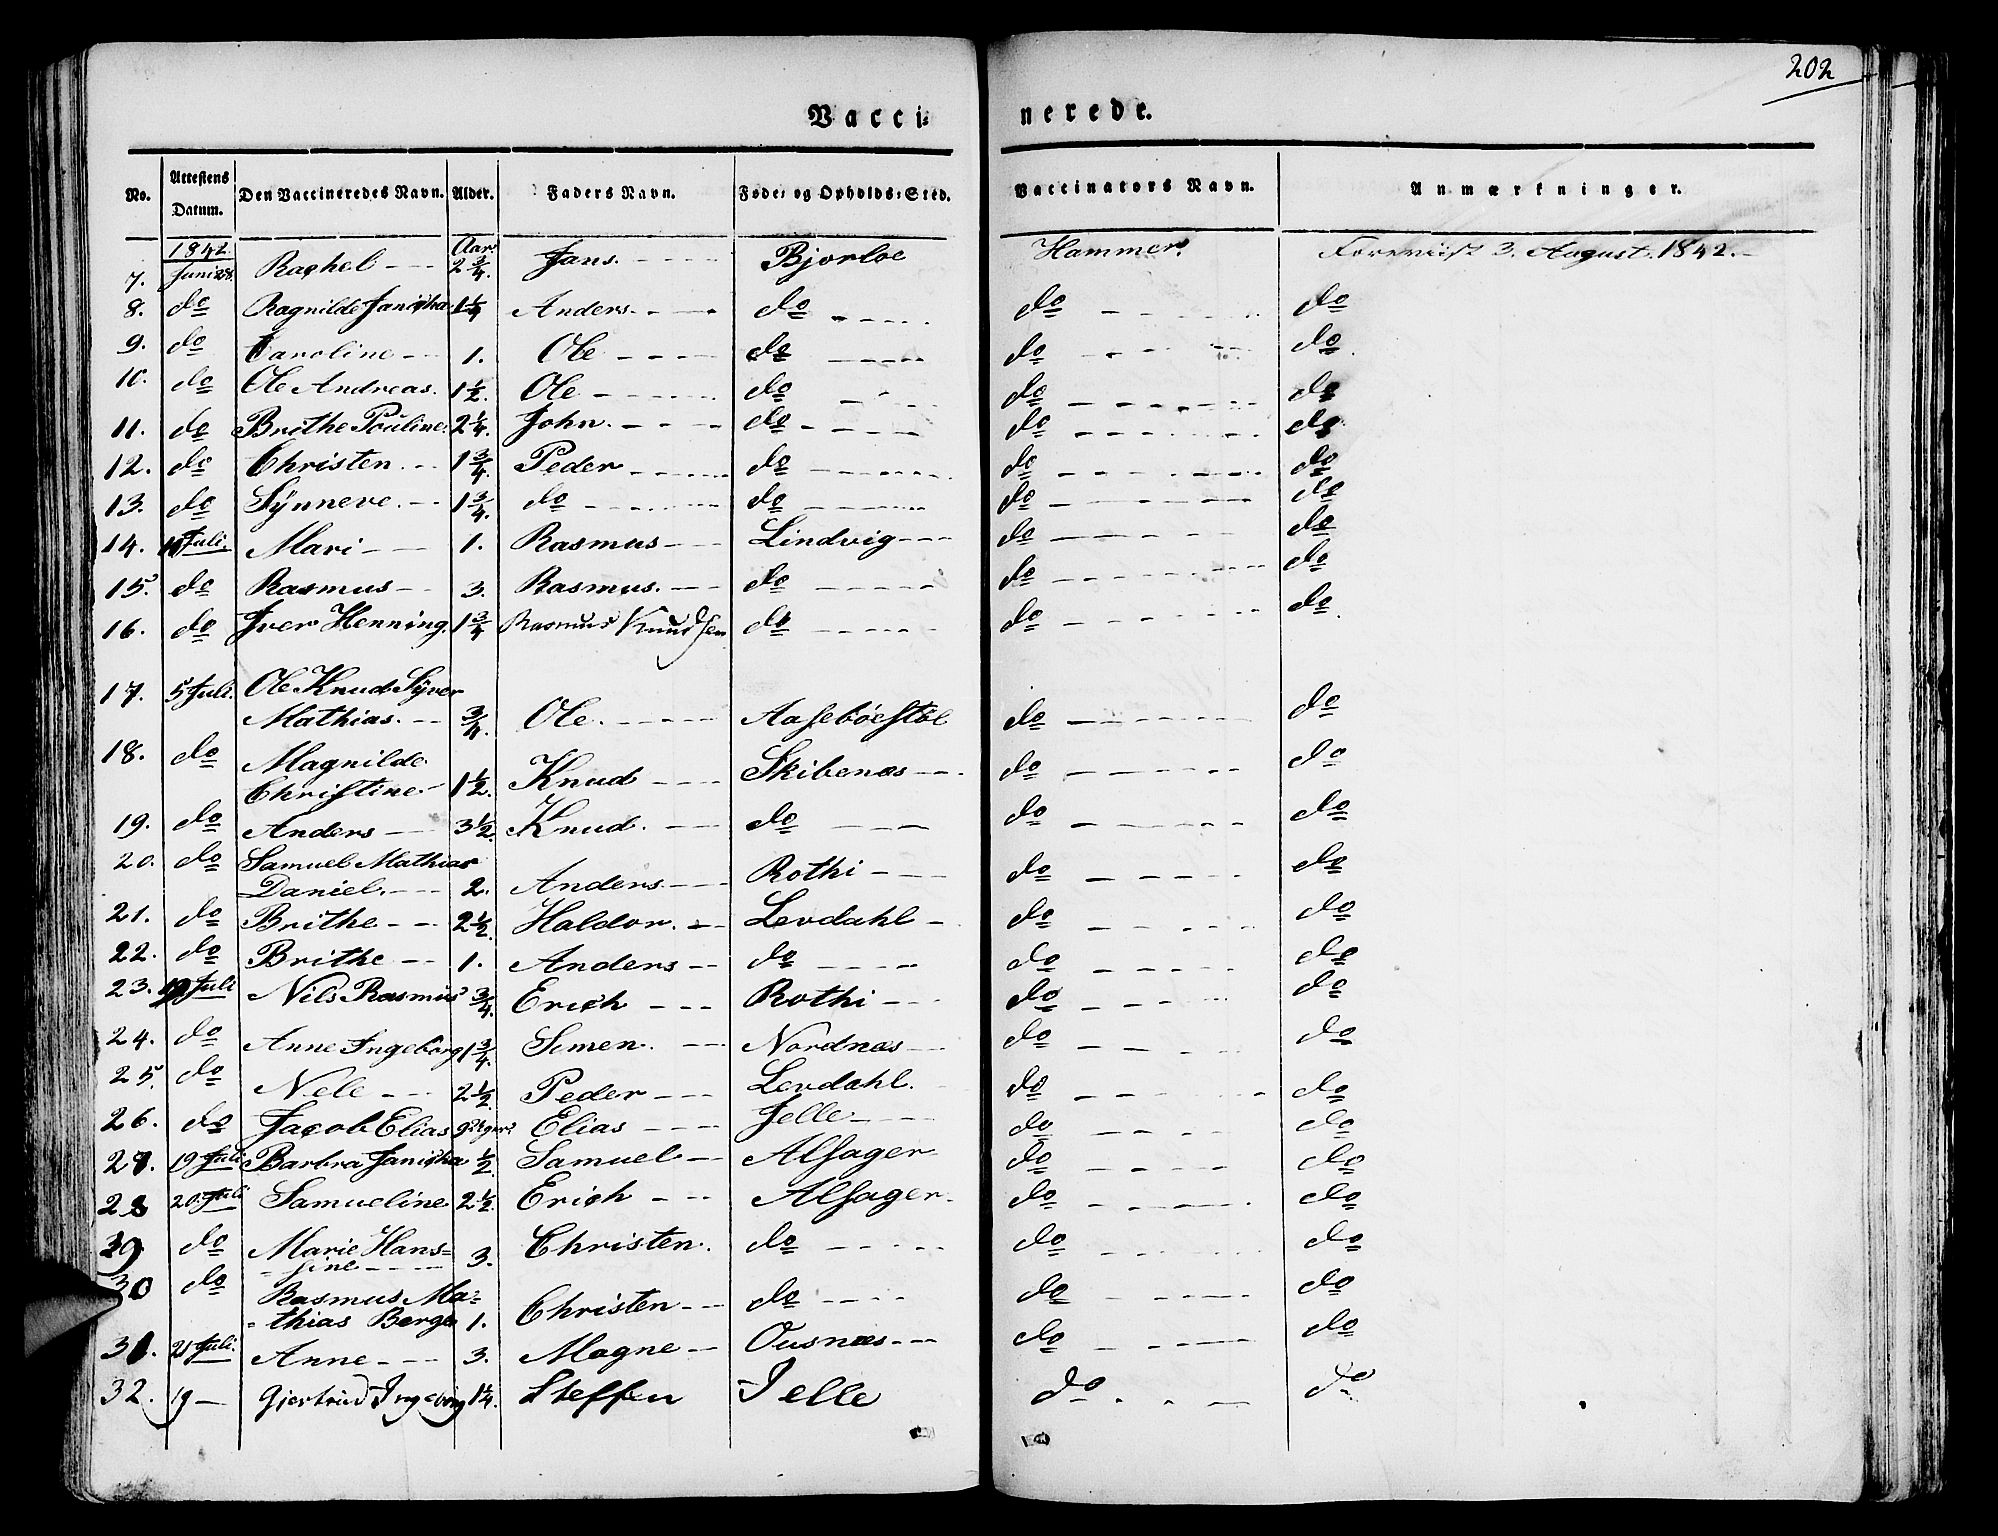 202
Vacci- nerede.
No. Attestens Datum. Den Vaccineredes Navn. Alder. Faders Navn. Føde- og Opholds-Sted. Vaccinators Navn. Anmærkninger.
1842 Aar
7. Juni 28. Rachel 2 3/4. Jans. Bjorloe Hammer. Foreviist 3. August. 1842.
8. do Ragnilde Janicha 1 1/4 Anders. do do do
9. do Caroline 1. Ole do do do
10. do Ole Andreas. 1 1/2. Ole do do do
11. do Brithe Pouline. 2 1/4. John. do do do
12. do Christen. 1 3/4. Peder do do do
13. do Sÿnneve. 1 3/4. do do do do
14. Juli. Mari 1. Rasmus Lindvig do do
15. do Rasmus 3. Rasmus. do do do
16. do Iver Henning. 1 3/4 Rasmus Knudsen do do do
17. 5 Juli. Ole Knud Sÿver
Mathias. 3/4. Ole. Aasebøestøl do do
18. do Magnilde
Christine 1 1/2. Knud Skibenæs do do
19. do Anders 3 1/2 Knud. do do do
20. do Samuel Mathias
Daniel. 2. Anders Rothi do do
21. do Brithe 2 1/2. Haldor. Levdahl do do
22. do Brithe 1. Anders do do do
23. 19 Juli Nils Rasmus 3/4. Erich Rothi do do
24. do Anne Ingeborg 1 3/4. Simen. Nordnæs do do
25. do Nele 2 1/2. Peder Levdahl. do do
26. do Jacob Elias Elias Jelle do do
27. 19 Juli Barbra Janicha 1/2. Samuel Alsager do do
28 20 Juli Samueline 2 1/2. Erich Alsager. do do
29 do Marie Hans=
=sine 3. Christen. do do do
30 do Rasmus Ma=
=thias Berge 1. Christen do do do
31. 21 Juli. Anne 3. Magne Ousnæs do do
32. 19 — Gjertrud Ingeborg 1 1/4. Steffen Jelle do do